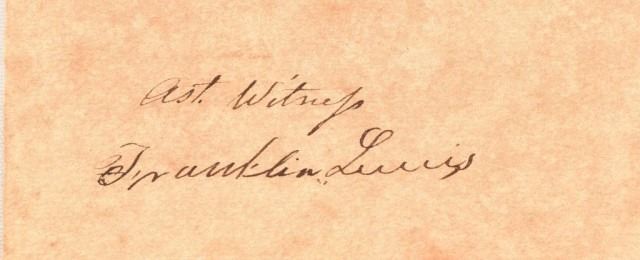 Ast. Witness
Franklin Lewis